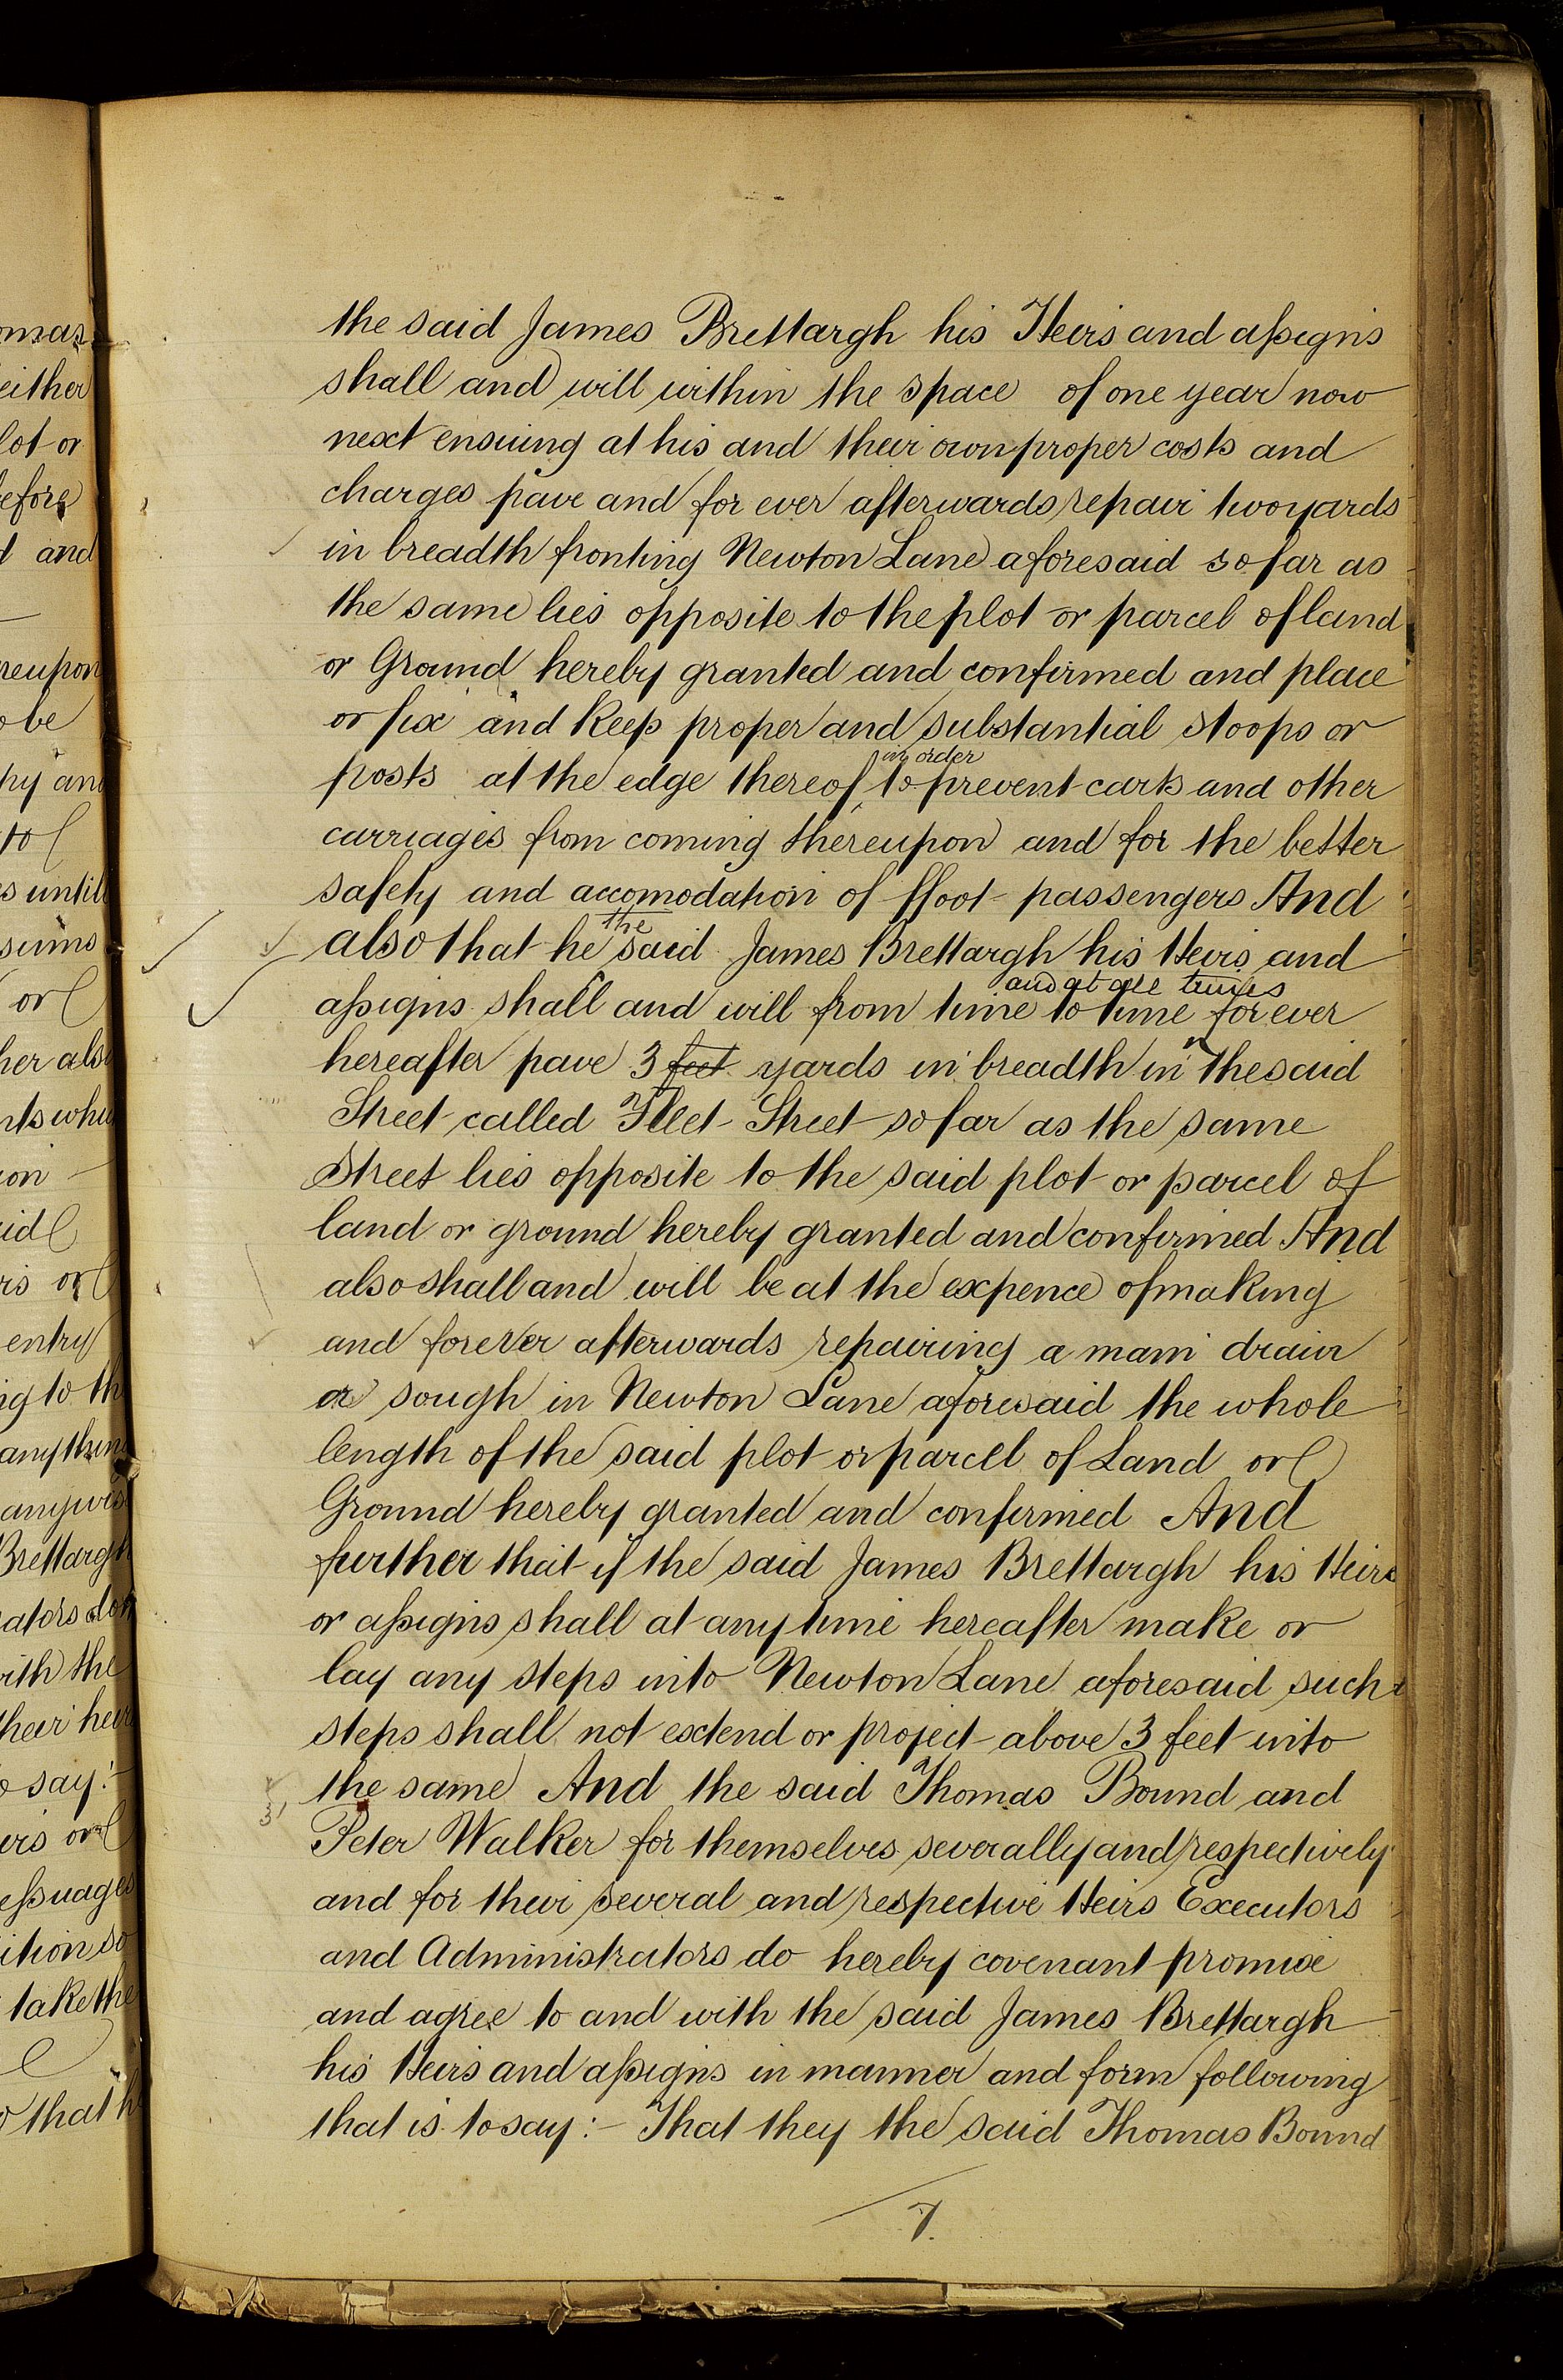 the said James Brettargh his Heirs and assigns
shall and will within the space of one year now
next ensuing at his and their own proper costs and
charges pave and for ever afterwards repair two yards
in breadth fronting Newton Lane aforesaid so far as
the same lies opposite to the plot or parcel of land
or Ground hereby granted and confirmed and place
or fix and keep proper and substantial stoops or
in order
posts at the edge thereof to prevent carts and other
carriages from coming thereupon and for the better
safety and accomodation of ffoot passengers And
the
also that he said James Brettargh his Heirs and
and at all times
assigns shall and will from time to time for ever
hereafter pave 3 feet yards in breadth in the said
Street called Fleet Street so far as the same
Street lies opposite to the said plot or parcel of
land or ground hereby granted and confirmed And
also shall and will be at the expence of making
and forever afterwards repairing a main drain
or sough in Newton Lane aforesaid the whole
length of the said plot or parcel of Land or
Ground hereby granted and confirmed And
further that if the said James Brettargh his Heirs
or assigns shall at any time hereafter make or
lay any steps into Newton Lane aforesaid such
steps shall not extend or project above 3 feet into
the same And the said Thomas Bound and
Peter Walker for themselves severally and respectively
and for their several and respective Heirs Executors
and Administrators do hereby covenant promise
and agree to and with the said James Brettargh
his Heirs and assigns in manner and form following
that is to say:- That they the said Thomas Bound
7.